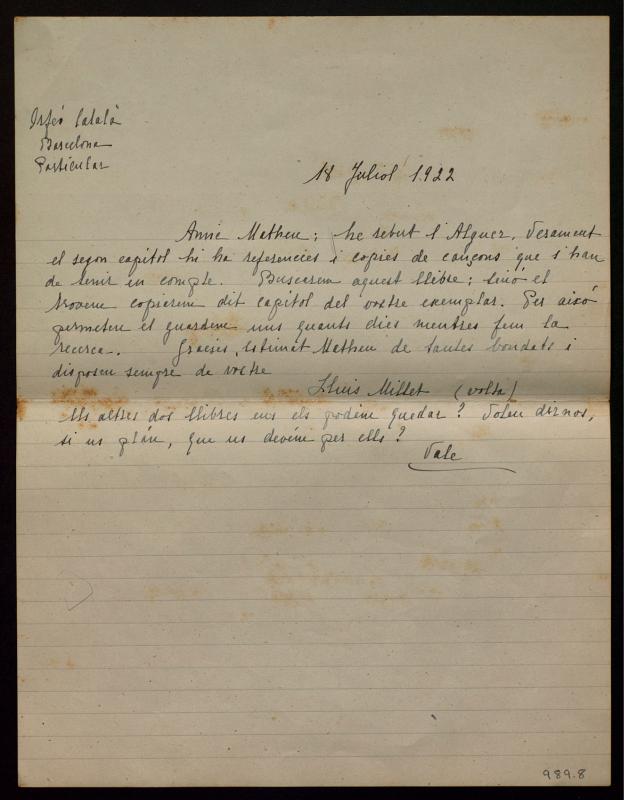 Orfeó Català
Barcelona
Particular
18 Juliol 1922
Amic Matheu; he rebut l'Alguer. Verament
el segon capítol hi ha referencies i copies de cançons que s'han
de tenir en compte. Buscarem aquest llibre; sinó el
trovem copiarem dit capitol del vostre exemplar. Per això
permeteu el guardem uns quants dies mentres fem la
recerca. Gracies, estimat Matheu de tantes bondats i
disposeu sempre de vostre
Lluis Millet (volta)
Els altres dos llibres ens els podem quedar? Voleu dirnos,
si us plau, que us devem per ells?
Vale
989.8